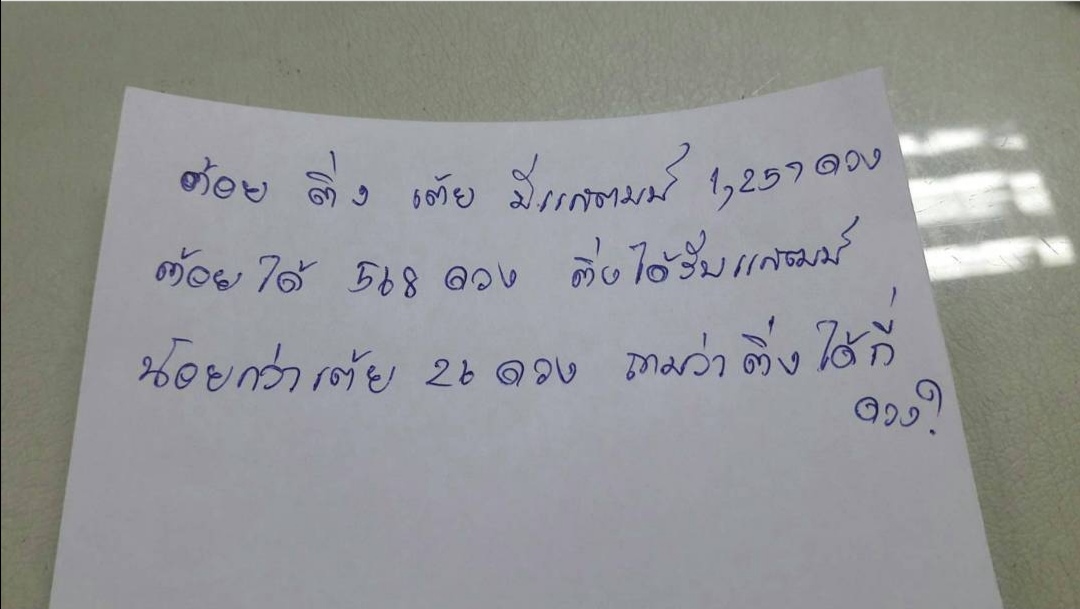 ต้อย ติ่ง เต้ย มีแสตมป์ 1,257 ดวง
ต้อยได้ 568 ดวง ติ่งได้รับแสตมป์
น้อยกว่าเต้ย 26 ดวง ถามว่า ติ่งได้กี่
ดวง?